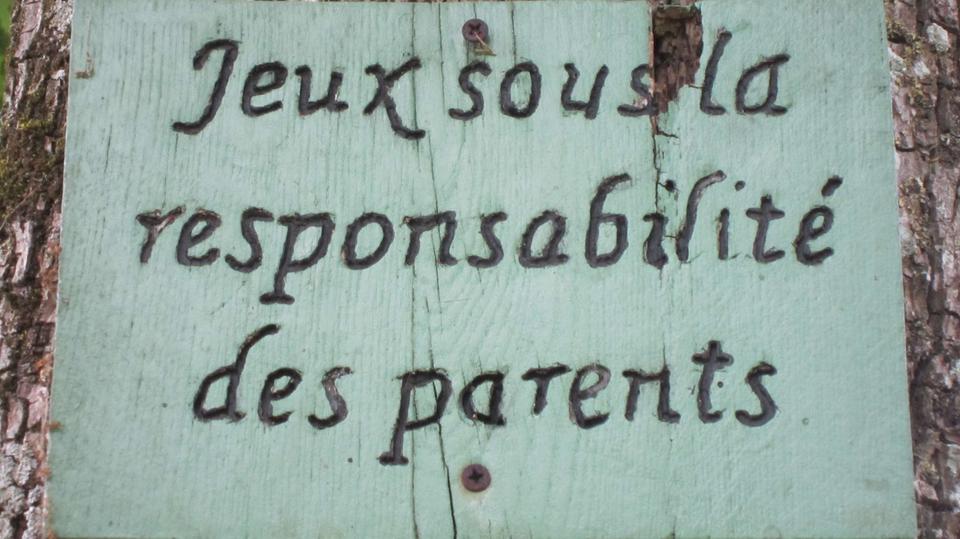 Jeux sous la
responsabilité
des parents